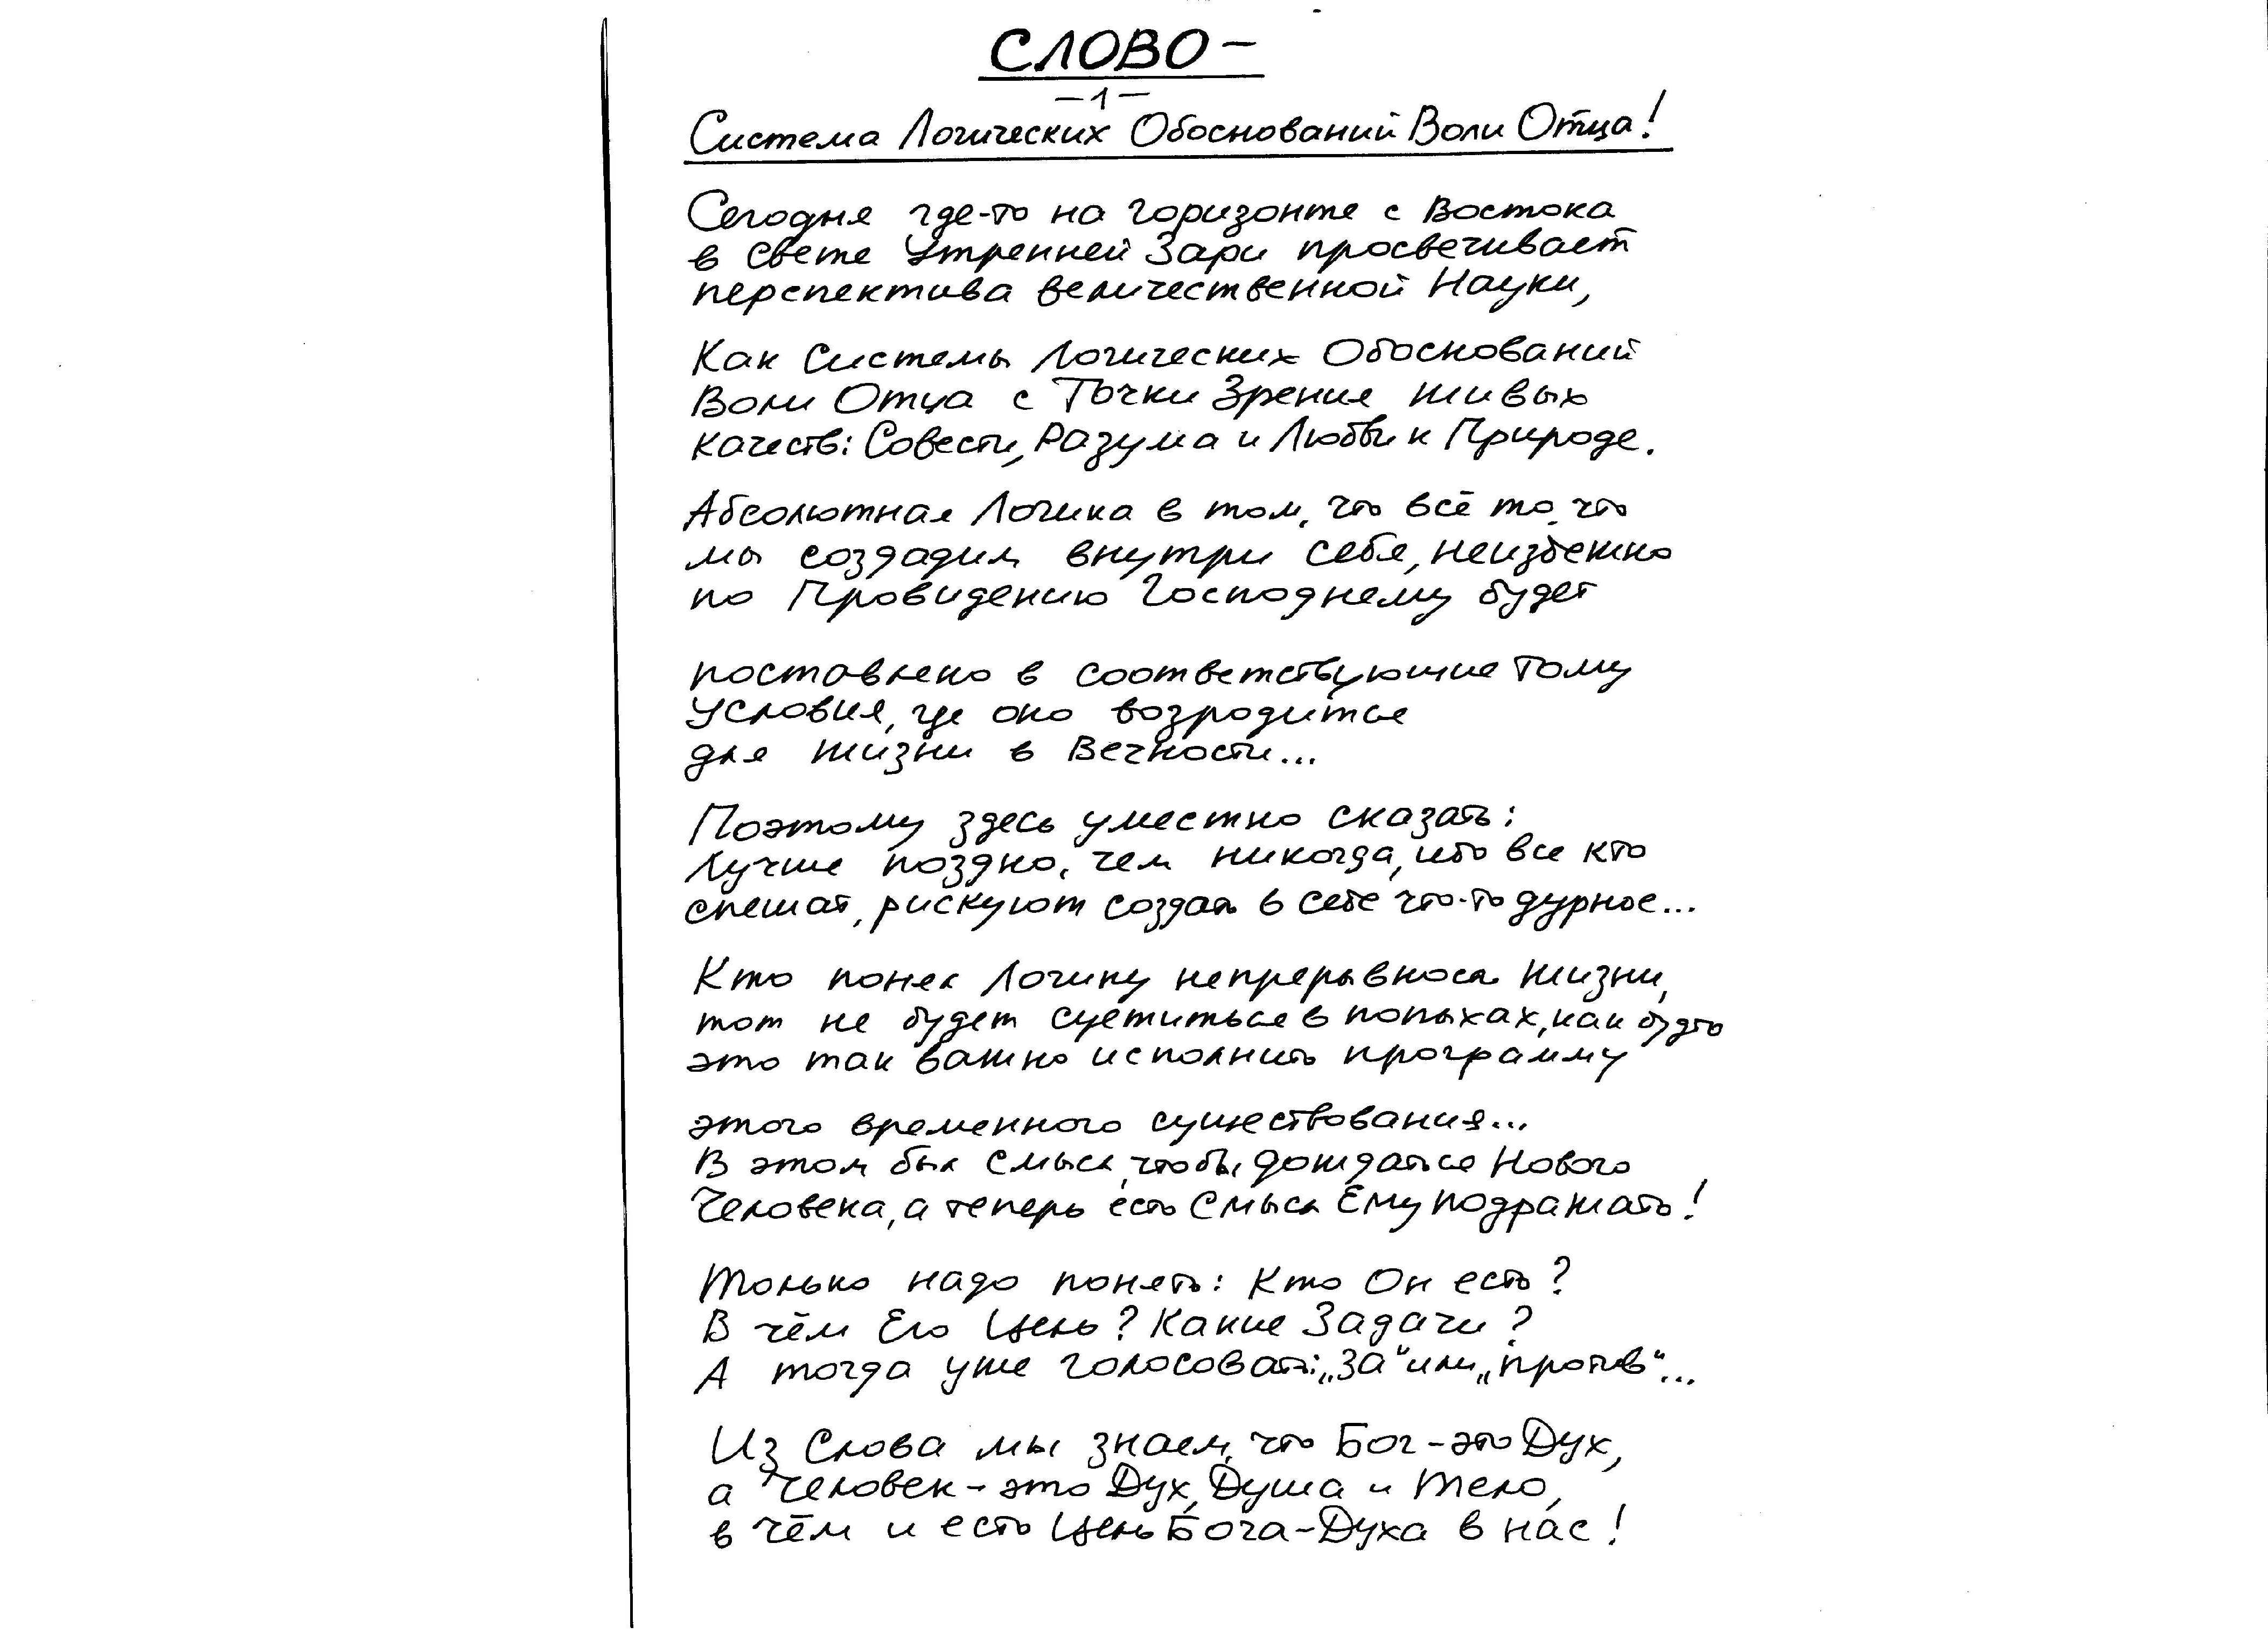 СЛОВО –
– 1 –
Система Логических Обоснований Воли Отца!
Сегодня где-то на горизонте с Востока
в свете Утренней Зари просвечивает
перспектива величественной Науки,
Как Системы Логических Обоснований
Воли Отца с Точки Зрения живых
качеств: Совести, Разума и Любви к Природе.
Абсолютная Логика в том, что всё то, что
мы создадим внутри себя, неизбежно
по Провидению Господнему будет
поставлено в соответствующие тому
условия, где оно возродится
для жизни в Вечности...
Поэтому здесь уместно сказать:
Лучше поздно, чем никогда, ибо все кто
спешат, рискуют создать в себе что-то дурное...
Кто понял Логику непрерывноса жизни,
тот не будет суетиться в попыхах, как будто
это так важно исполнить программу
этого временного существования...
В этом был смысл, чтобы дождаться Нового
Человека, а теперь есть Смысл Ему подражать!
Только надо понять: Кто Он есть?
В чём Его Цель? Какие Задачи?
А тогда уже голосовать: „За" или „против"...
Из Слова мы знаем, что Бог - это Дух,
а человек - это Дух, Душа и Тело,
в чём и есть Цель Бога-Духа в нас!